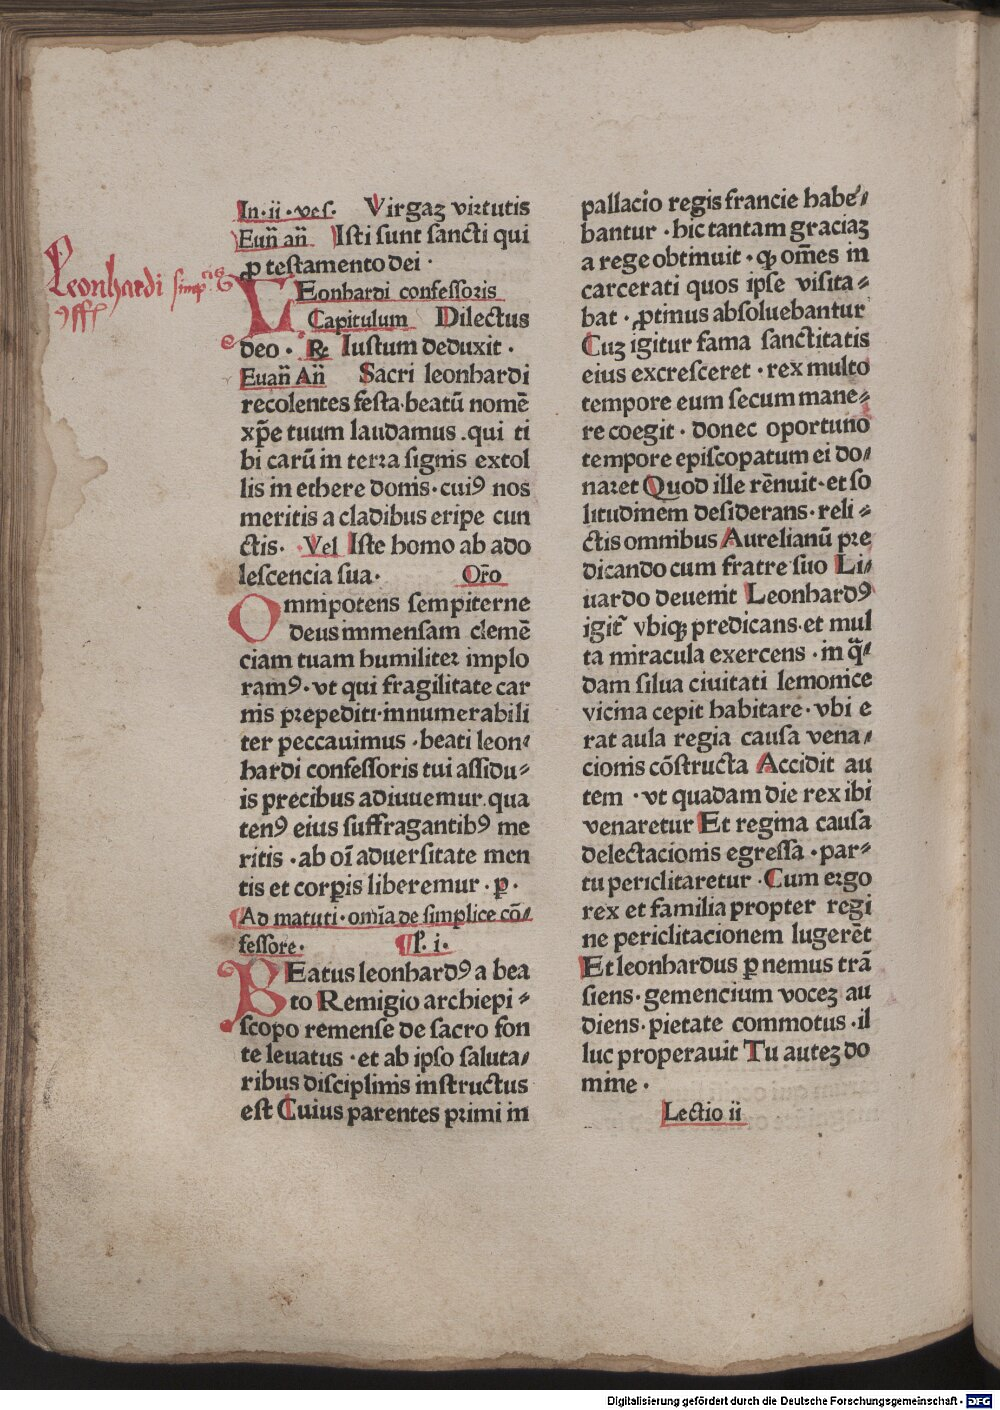 In·ii·ves. Virgaȝ virtutis
Euñ añ Isti sunt sancti qui
ꝓ testamento dei·
Leonhardi simp
LEonhardi confessoris
Capitulum Dilectus
deo· R̃ Iustum deduxit·
Euañ Añ Sacri leonhardi
recolentes festa·beatū nomē
xp̄e tuum laudamus.qui ti
bi carū in terra signis extol
lis in ethere donis·cuiꝰ nos
meritis a cladibus eripe cun
ctis· Vel Iste homo ab ado
lescencia sua· Or̄o
Omnipotens sempiterne
deus immensam clemē
ciam tuam humiliter implo
ramꝰ·vt qui fragilitate car
nis prepediti·innumerabili
ter peccauimus·beati leon⸗
hardi confessoris tui assidu⸗
is precibus adiuuemur.qua
tenꝰ eius suffragantibꝰ me
ritis·ab oī aduersitate men
tis et corꝑis liberemur·ꝑ·
Ad matuti·om̄ia de simplice cō⸗
fessore· l. i·
BEatus leonhardꝰ a bea
to Remigio archiepi⸗
scopo remense de sacro fon
te leuatus·et ab ipso saluta⸗
ribus disciplinis instructus
est Cuius parentes primi in
pallacio regis francie habe⸗
bantur·hic tantam graciaȝ
a rege obtinuit·ꝙ om̄es in
carcerati quos ipse visita⸗
bat·ꝓtimus absoluebantur
Cuȝ igitur fama sanctitatis
eius excresceret·rex multo
tempore eum secum mane⸗
re coegit·donec oportuno
tempore episcopatum ei do⸗
naret Quod ille rēnuit·et so
litudinem desiderans·reli⸗
ctis omnibus Aurelianū pre
dicando cum fratre suo Li⸗
uardo deuenit Leonhardꝰ
igit᷑ vbiqꝫ predicans·et mul
ta miracula exercens·in q̄⸗
dam silua ciuitati lemonice
vicina cepit habitare·vbi e
rat aula regia causa vena⸗
cionis cōstructa Accidit au
tem·vt quadam die rex ibi
venaretur Et regina causa
delectacionis egressa·par⸗
tu periclitaretur·Cum ergo
rex et familia propter regi
ne periclitacionem lugerēt
Et leonhardus ꝑ nemus trā
siens·gemencium voceȝ au
diens·pietate commotus·il
luc properauit Tu auteȝ do
mine·
Lectio ii
Digitalisierung gefördert durch die Deutsche Forschungsgemeinschaft - DFG